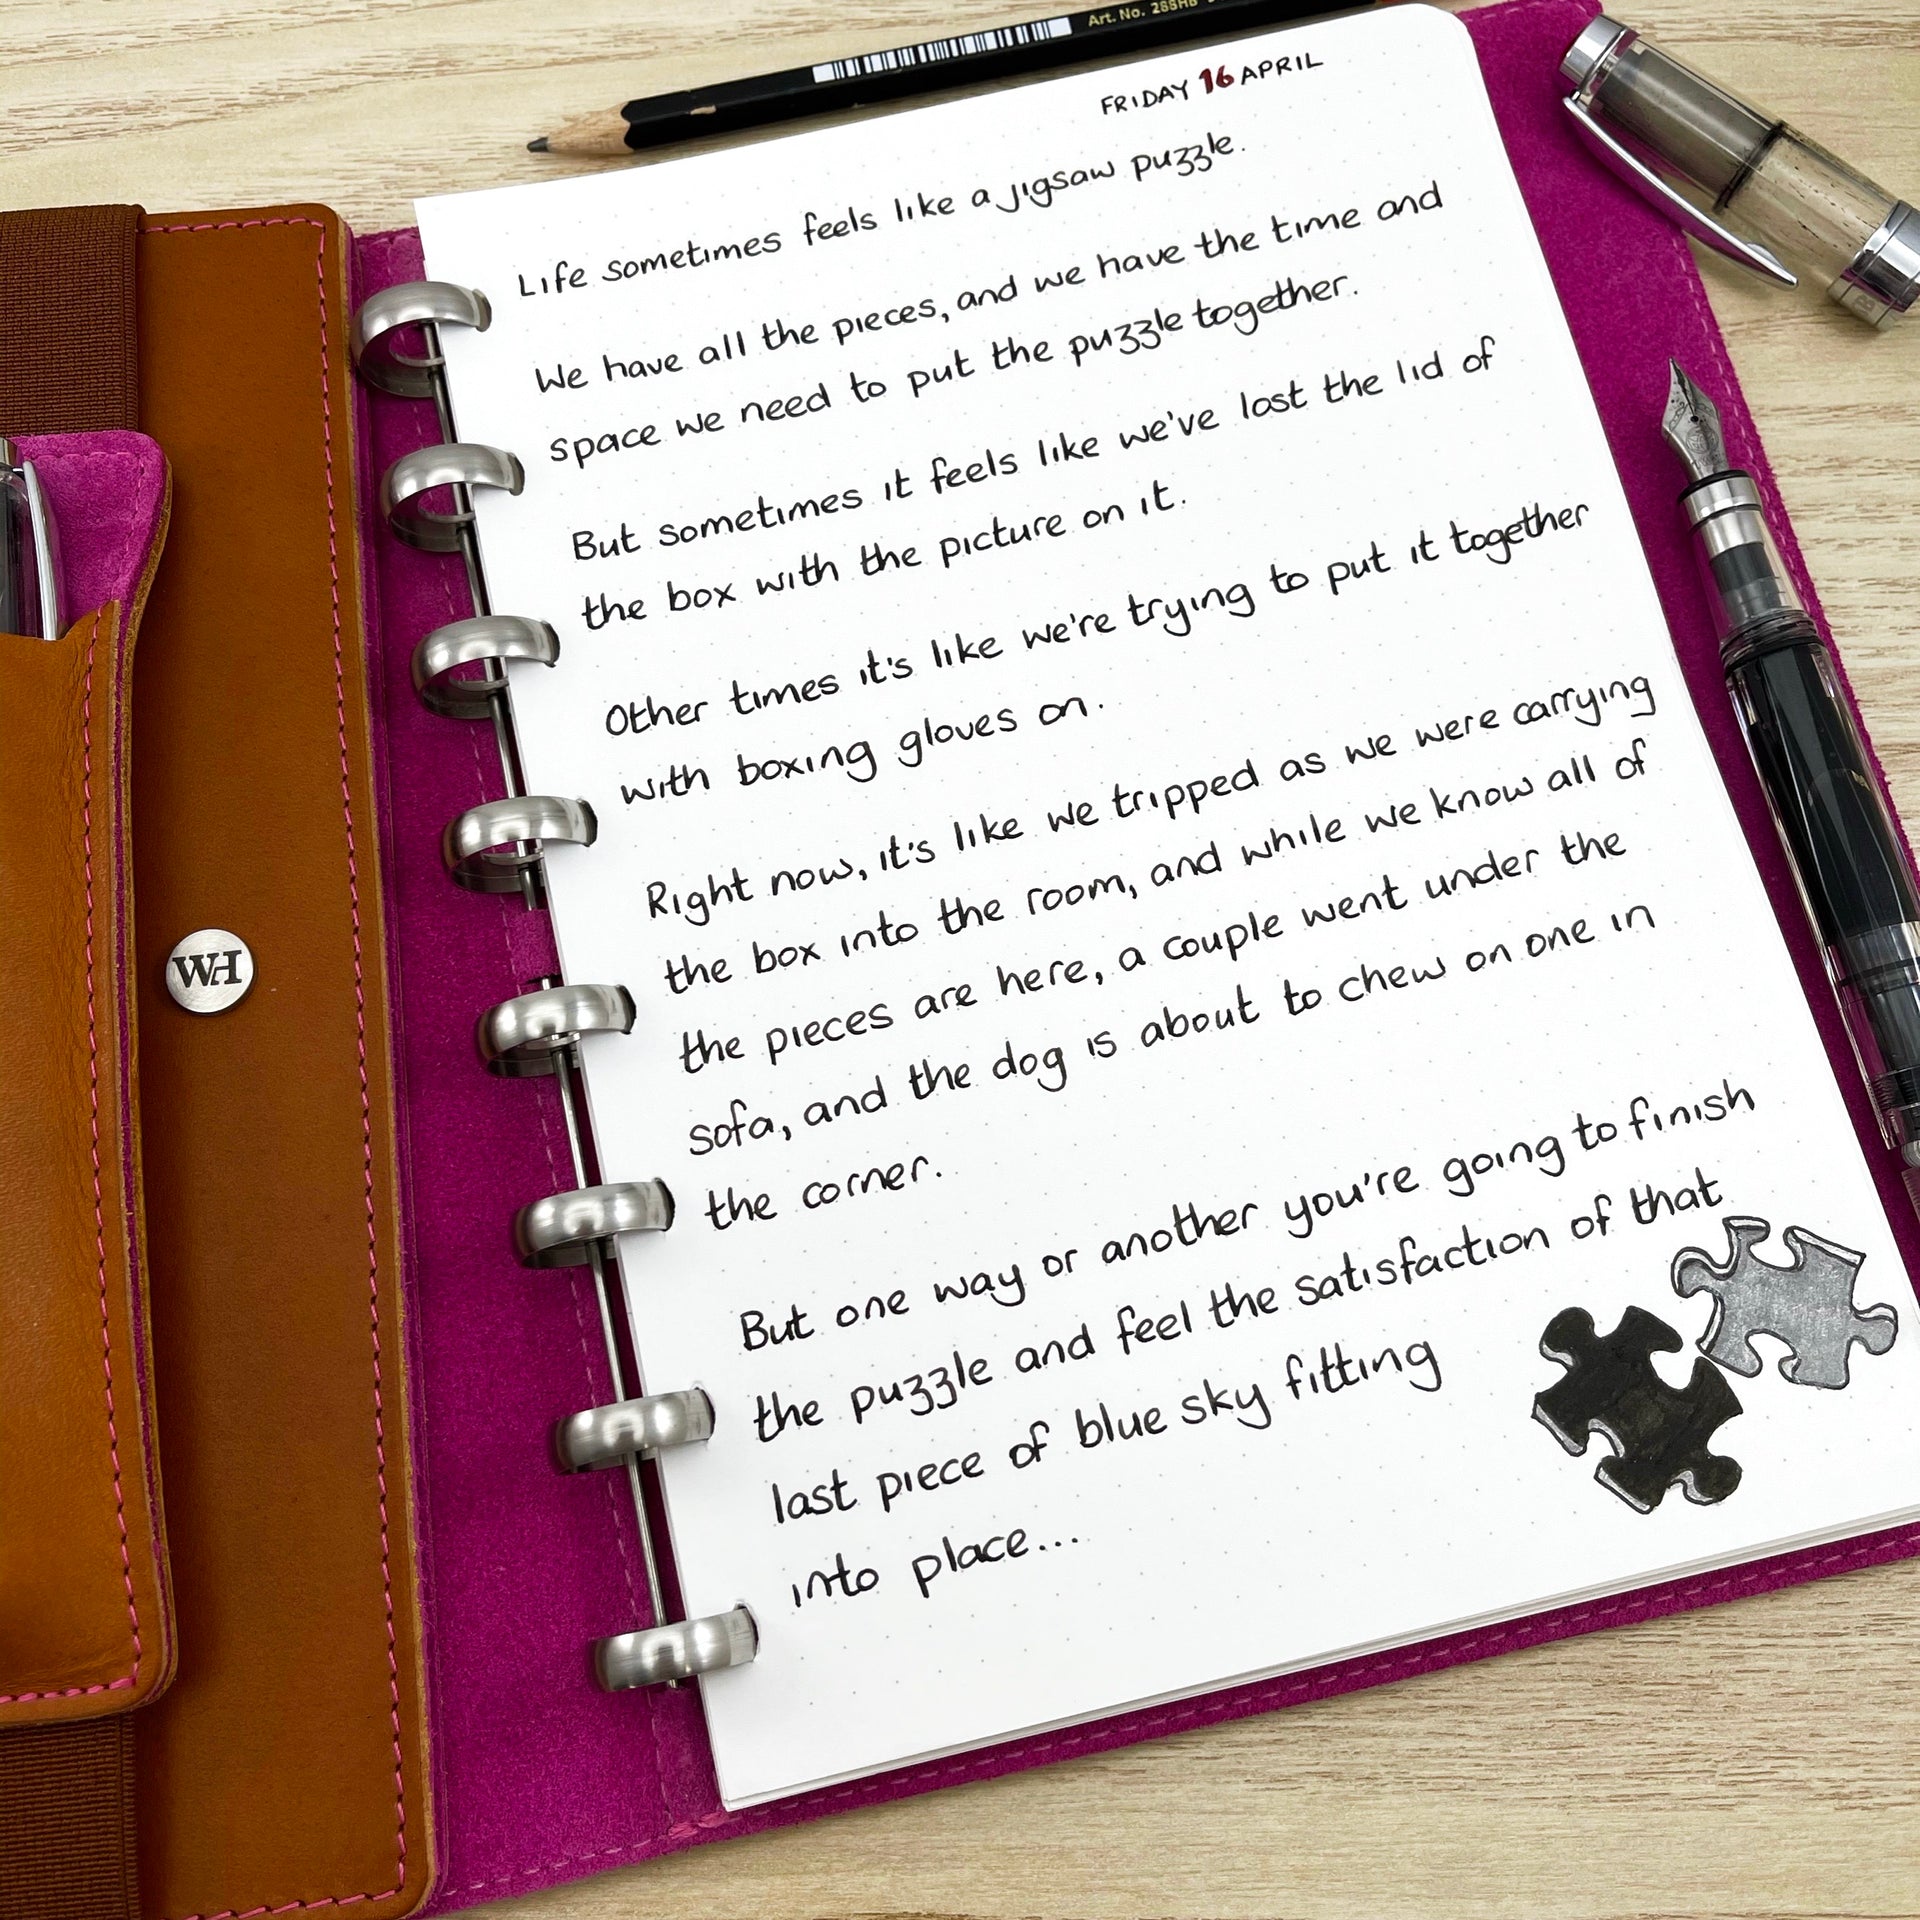 Art. No. 288HB
FRIDAY 16 APRIL
Life sometimes feels like a jigsaw puzzle.
We have all the pieces, and we have the time and
space we need to put the puzzle together.
But sometimes it feels like we've lost the lid of
the box with the picture on it.
Other times it's like we're trying to put it together
with boxing gloves on.
Right now, it's like we tripped as we were carrying
the box into the room, and while we know all of
the pieces are here, a couple went under the
sofa, and the dog is about to chew on one in
the corner.
But one way or another you're going to finish
the puzzle and feel the satisfaction of that
last piece of blue sky fitting
into place...
WH
B